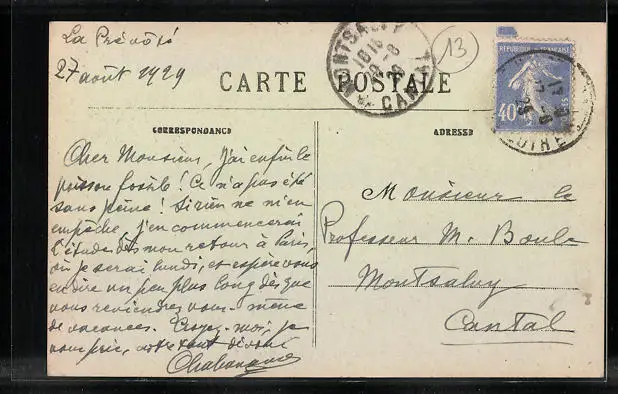 La Prévôté
27 août 1929
13
MONTSALVY
CANTAL
RÉPUBLIQUE FRANÇAISE
40
CARTE POSTALE
CORRESPONDANCE
ADRESSE
Cher Monsieur, J'ai enfin le
poisson fossile! Ce n'a pas été
sans peine! Si rien ne m'en
empêche, j'en commencerai
l'étude dès mon retour à Paris,
où je serai lundi, et espère vous
en dire un peu plus long dès que
vous reviendrez vous-même
de vacances. Croyez-moi, je
vous prie, votre tout dévoué
Chabanaud
Monsieur le
Professeur M. Boule
Montsalvy
Cantal